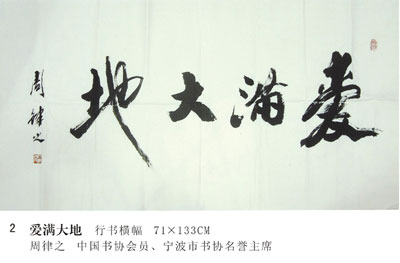 爱满大地
周律之
2 爱满大地 行书横幅 71×133CM
周律之 中国书协会员、宁波市书协名誉主席